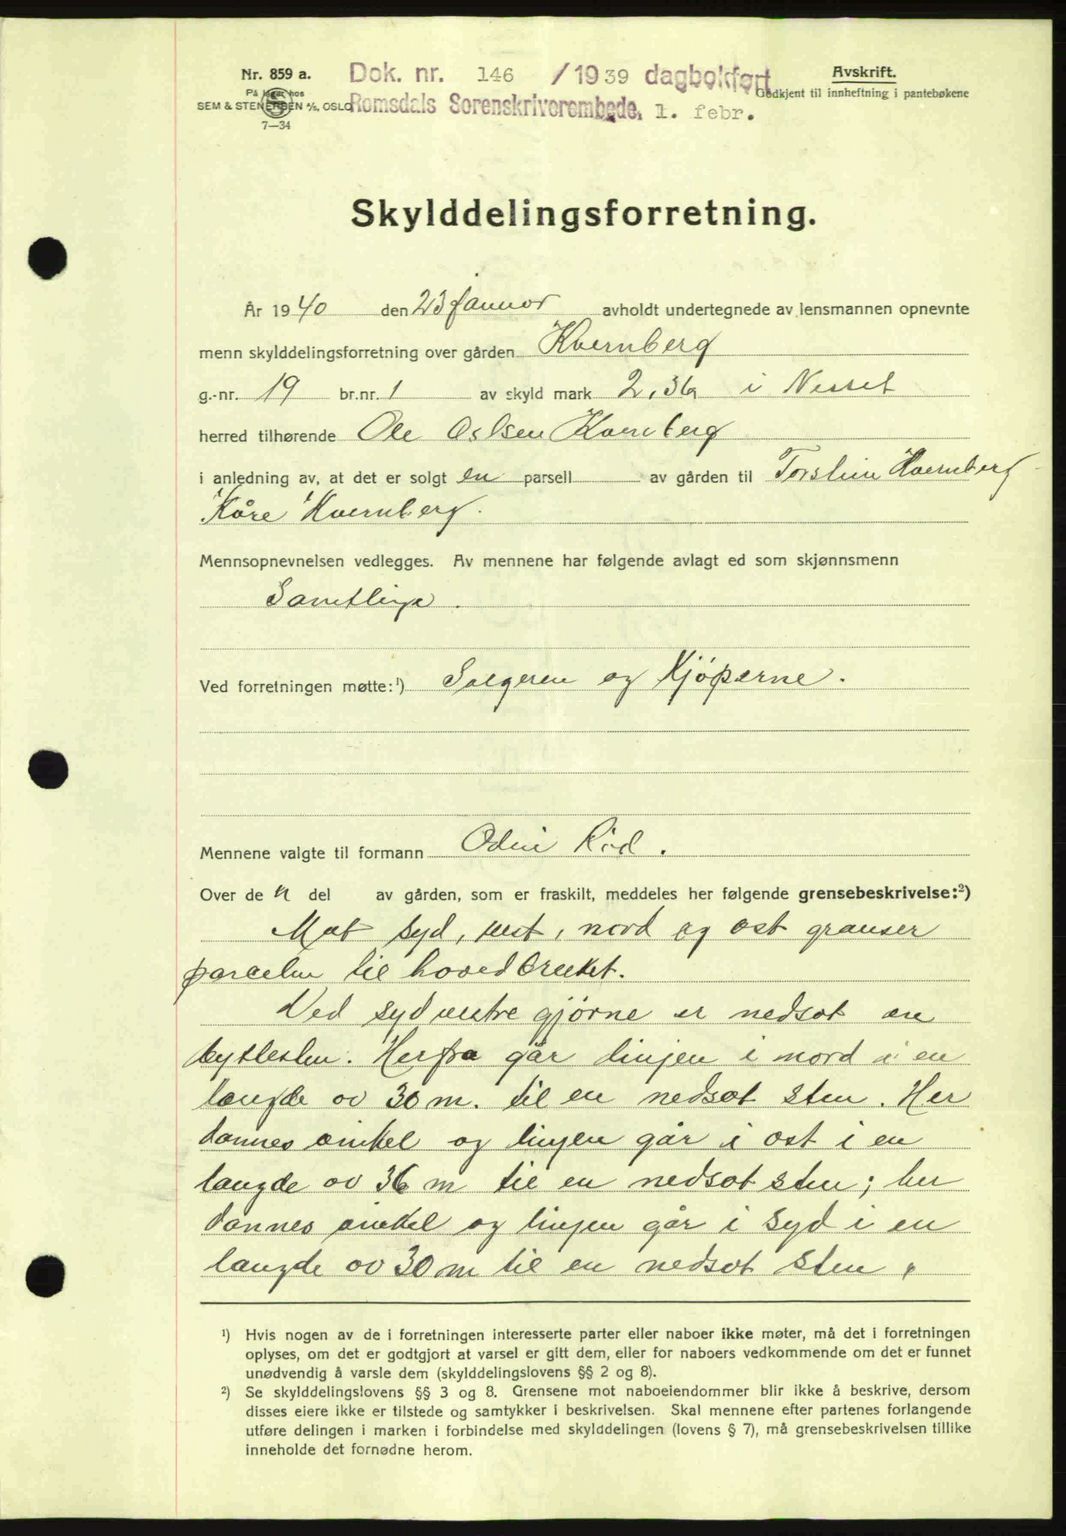 Nr. 859 a.
På lager hos
SEM & STENERSEN A/S, OSLO
7—34
Dok. nr. 146 /1939 dagbokført
Romsdals Sorenskriverembede, 1. febr.
Avskrift.
Godkjent til innheftning i pantebøkene
Skylddelingsforretning.
År 1940 den 23 januar avholdt undertegnede av lensmannen opnevnte
menn skylddelingsforretning over gården Kvernberg
g.-nr. 19 br.nr. 1 av skyld mark 2,36 i Nesset
herred tilhørende Ole Oslsen Kvernberg
i anledning av, at det er solgt en parsell av gården til Torstein Kvernberg
Kåre Kvernberg.
Mennsopnevnelsen vedlegges. Av mennene har følgende avlagt ed som skjønnsmenn
Samtlige.
Ved forretningen møtte:¹) Selgeren og Kjøperne.
Mennene valgte til formann Odin Rød.
Over de n del av gården, som er fraskilt, meddeles her følgende grensebeskrivelse:²)
Mot syd, vest, nord og ost granser
parcelen til hovedbruket.
Ved syd vestre hjørne er nedsat en
bytlesten. Herfra går linjen i nord i en
langde av 30 m. til en nedsat sten. Her
dannes vinkel og linjen går i ost i en
langde av 36 m til en nedsat sten; her
dannes vinkel og linjen går i syd i en
langde av 30 m til en nedsat sten.
¹) Hvis nogen av de i forretningen interesserte parter eller naboer ikke møter, må det i forretningen
oplyses, om det er godtgjort at varsel er gitt dem, eller for naboers vedkommende om det er funnet
unødvendig å varsle dem (skylddelingslovens §§ 2 og 8).
²) Se skylddelingslovens §§ 3 og 8. Grensene mot naboeiendommer blir ikke å beskrive, dersom
disses eiere ikke er tilstede og samtykker i beskrivelsen. Skal mennene efter partenes forlangende
utføre delingen i marken i forbindelse med skylddelingen (lovens § 7), må grensebeskrivelsen tillike
inneholde det fornødne herom.